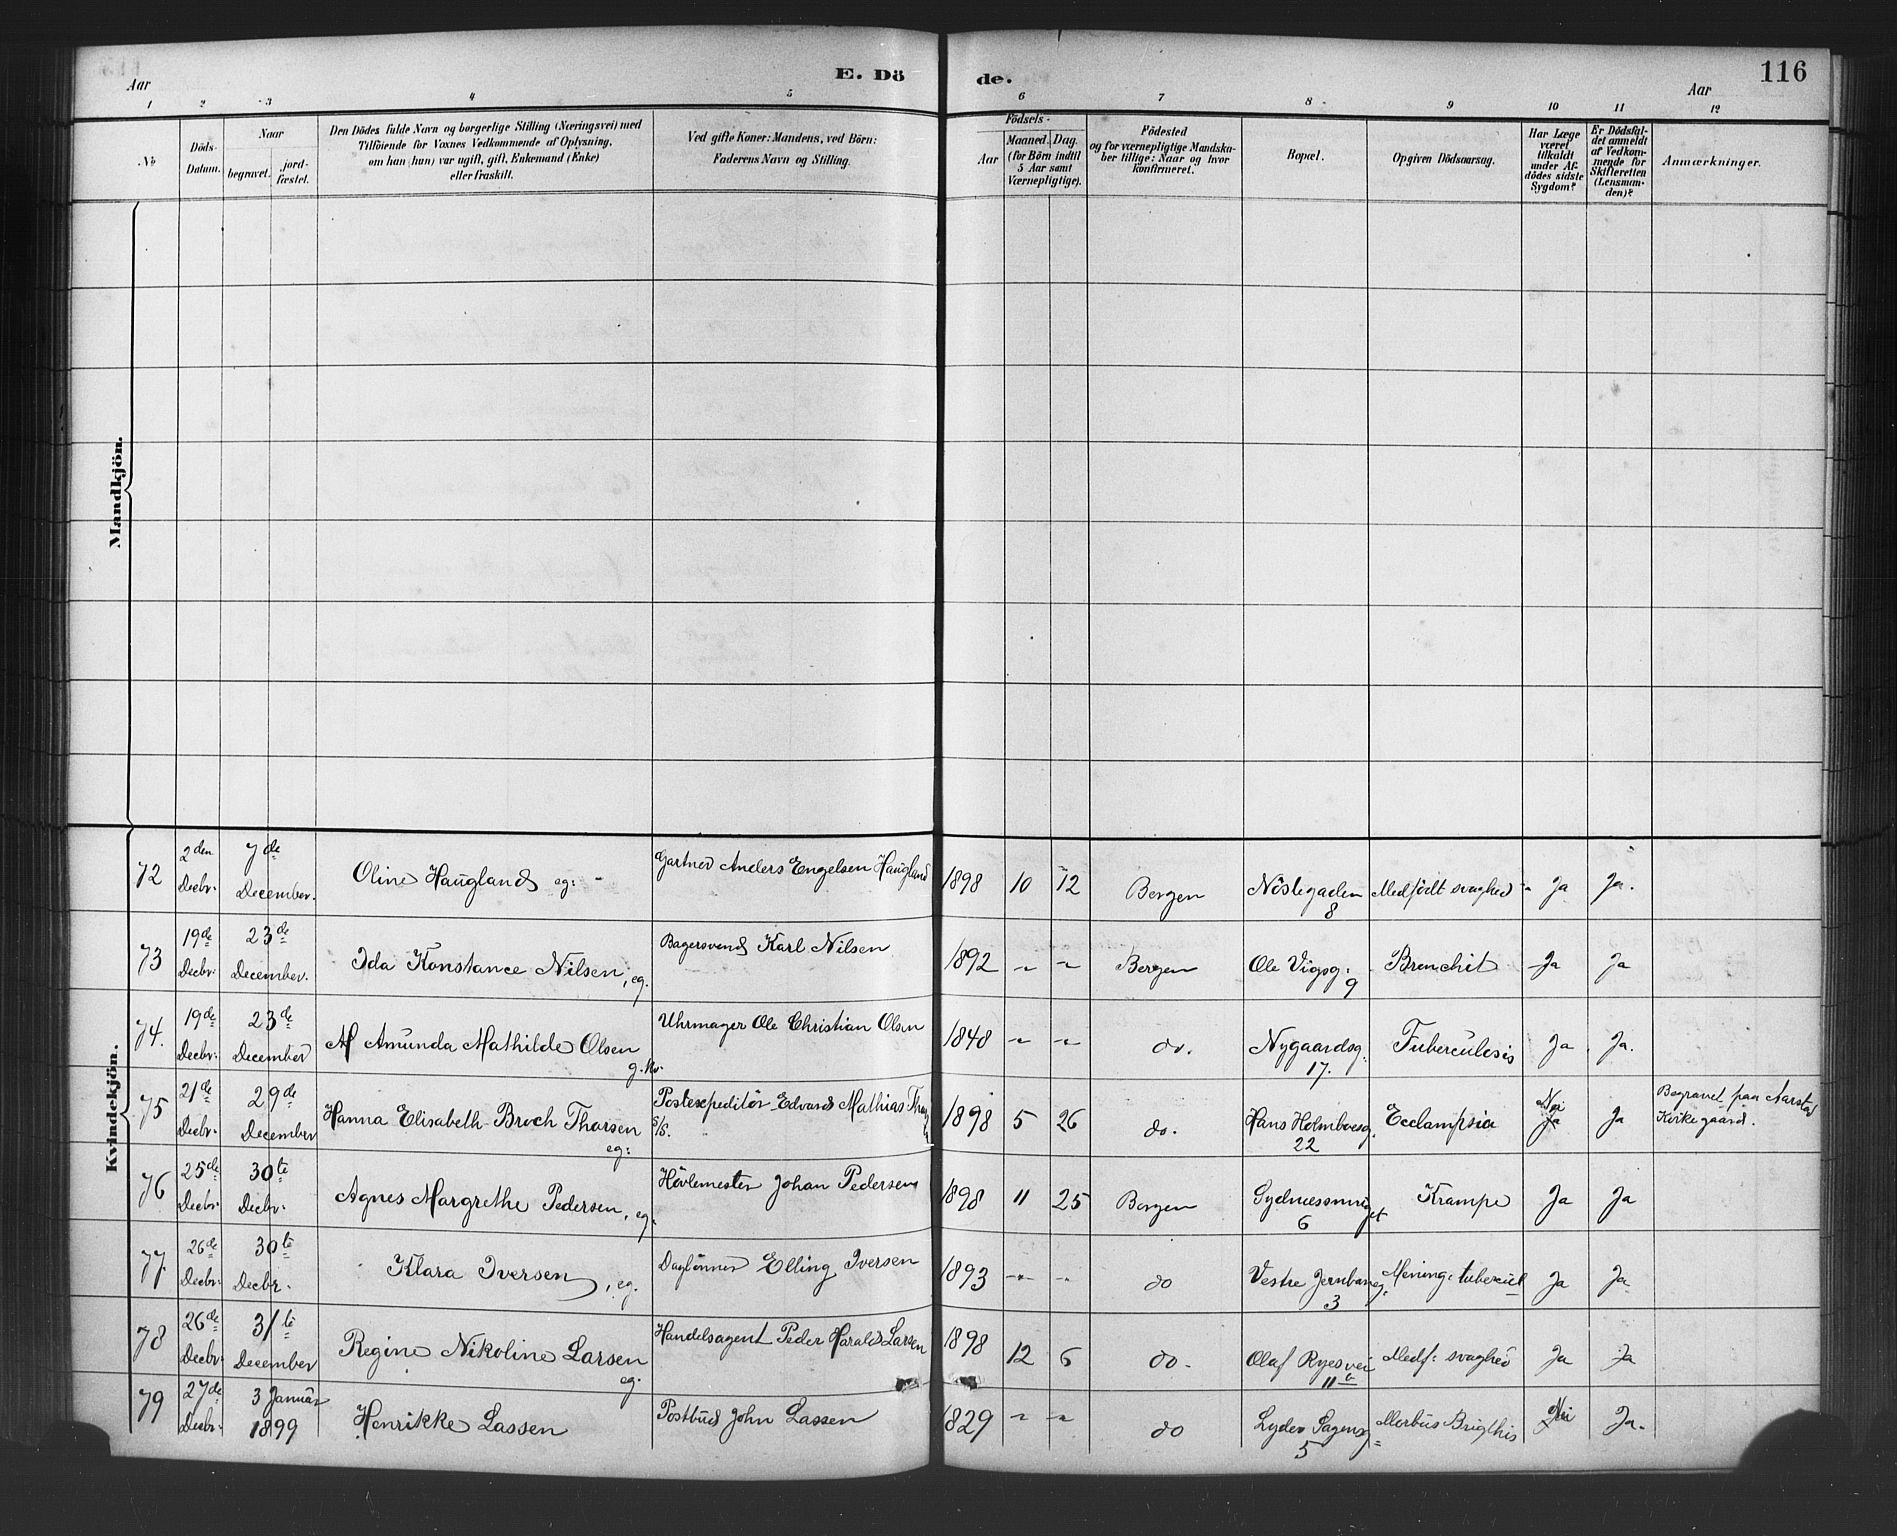 E. Dö de.
116
Aar
Aar
1 2 3 4 5 6 7 8 9 10 11 12
No
Döds-Datum.
Naar
begravet.
jord-fæstet.
Den Dödes fulde Navn og borgerlige Stilling (Næringsvei) med
Tilföiende for Voxnes Vedkommende af Oplysning,
om han (hun) var ugift, gift, Enkemand (Enke)
eller fraskilt.
Ved gifte Koner: Mandens, ved Börn:
Faderens Navn og Stilling.
Födsels-
Aar
Maaned. Dag.
(for Börn indtil
5 Aar samt
Værnepligtige).
Födested
og for værnepligtige Mandska-
ber tillige: Naar og hvor
konfirmeret.
Bopæl.
Opgiven Dödsaarsag.
Har Læge
været
tilkaldt
under Af-
dödes sidste
Sygdom?
Er Dödsfal-
det anmeldt
af Vedkom-
mende for
Skifteretten
(Lensman-
den)?
Anmærkninger.
Mandkjön.
Kvindekjön.
72 2den Decbr. 7de December. Oline Haugland eg: Gartner Anders Engelsen Haugland 1898 10 12 Bergen Nöstegaden 8 Medfödt svaghed Ja Ja.
73 19de Decbr. 23de December. Ida Konstance Nilsen, eg. Bagersvend Karl Nilsen 1892 " " Bergen Ole Vigsg. 9 Bronchit Ja Ja
74. 19de Decbr. 23de December Amunda Mathilde Olsen g. Kv. Uhrmager Ole Christian Olsen 1848 " " do. Nygaardsg. 17. Tuberculosis Ja Ja.
75 21de Decbr. 29de December Hanna Elisabeth Broch Thorsen eg: Postexpeditör Edvard Mathias 1898 5 26 do. Hans Holmboesg. 22 Ecclampsia Nei Ja Begravet paa Aarstad Kirkegaard.
76 25de Decbr. 30te Decbr. Agnes Margrethe Pedersen, eg. Hövlemester Johan Pedersen 1898 11 25 Bergen Sydnessmuget 6 Krampe Ja Ja
77. 26de Decbr. 30te Decbr. Klara Iversen, eg. Daglönner Elling Iversen 1893 " " do Vestre Jernbaneg. 3 Mening: tubercul Ja Ja
78 26de Decbr. 31te December Regine Nikoline Larsen eg. Handelsagent Peder Harald Larsen 1898 12 6 do. Olaf Ryesvei 11b Medf: svaghed Ja Ja
79 27de Decbr. 3 Januar 1899 Henrikke Lassen Postbud John Lassen 1829 " " do Lyder Sagensg 5 Morbus Brigthis Nei Ja.